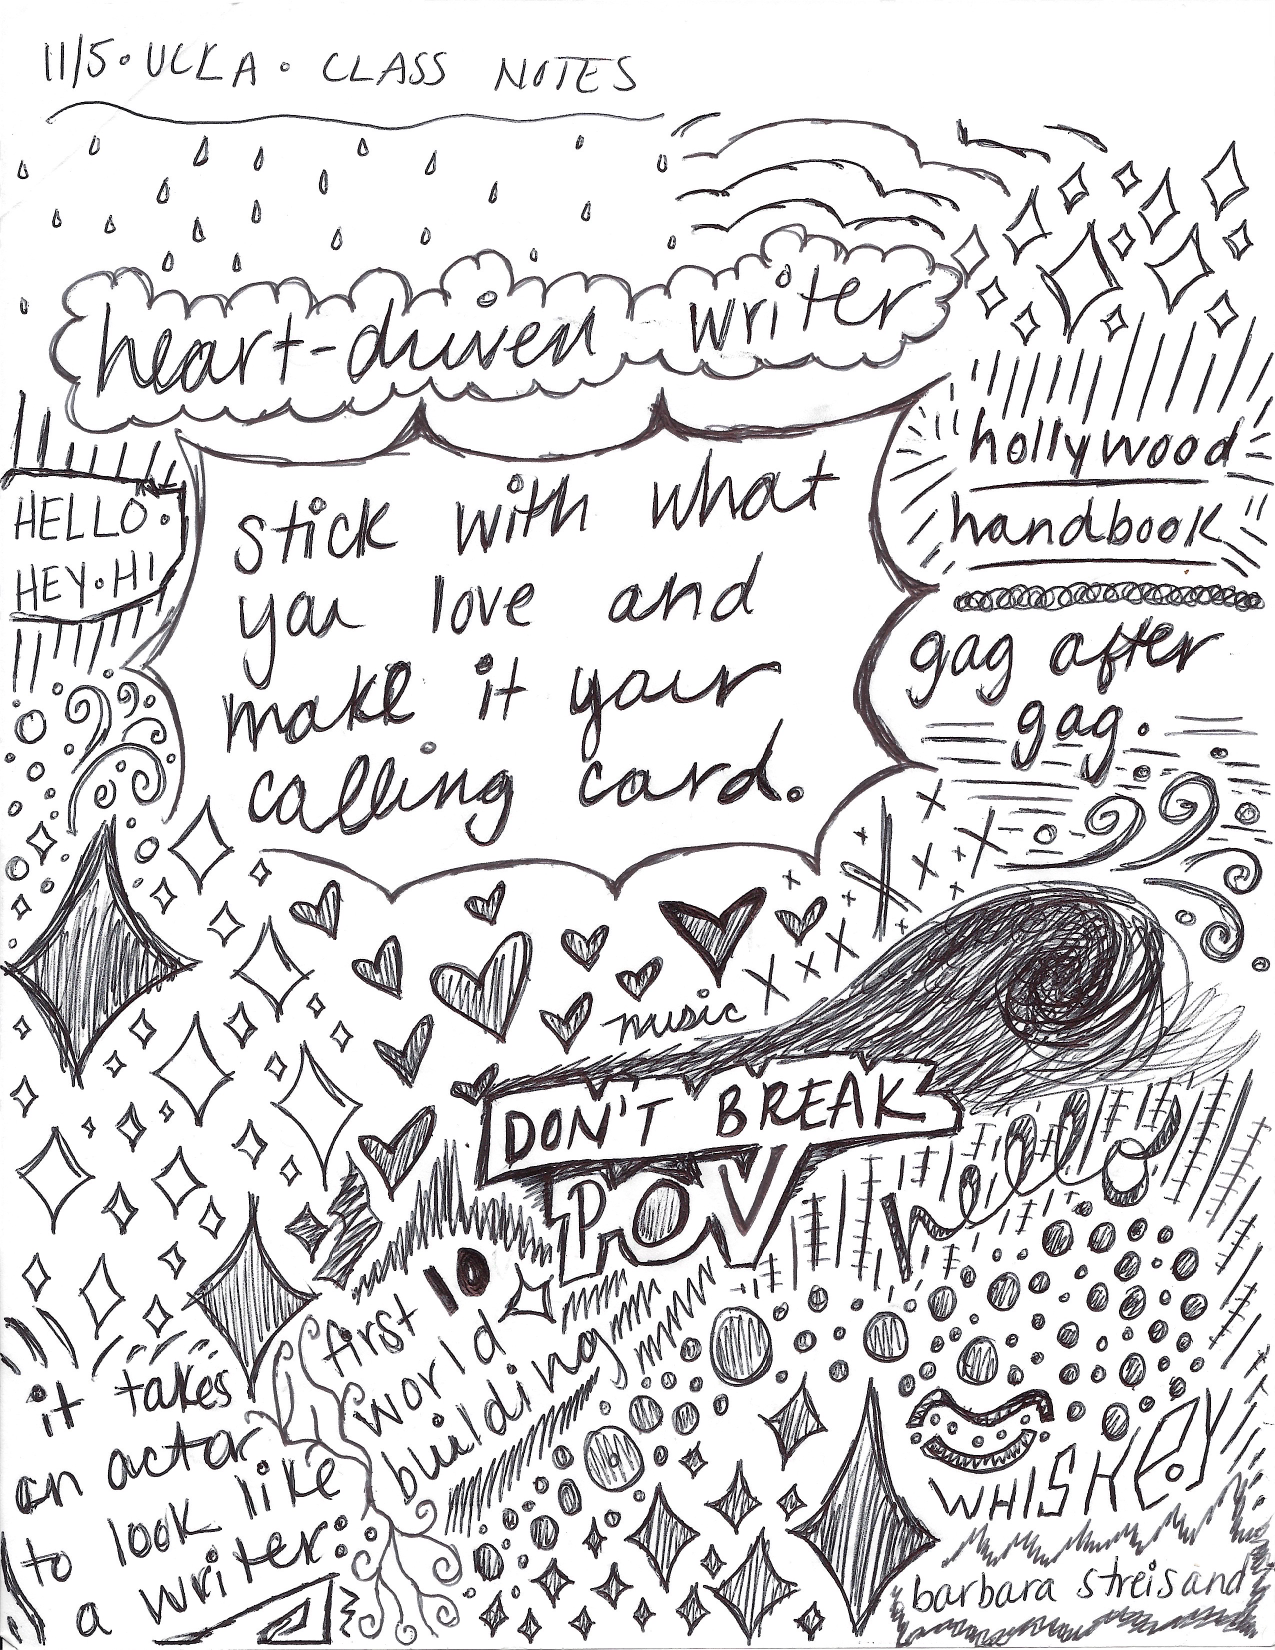 11/5 • UCLA • CLASS NOTES
heart-driven writer
HELLO •
HEY • HI
stick with what
you love and
make it your
calling card.
"hollywood
handbook"
gag after
gag.
music
DON'T BREAK
POV
hello
first 10
world
building
it takes
an actor
to look like
a writer:
WHISKEY
barbara streisand